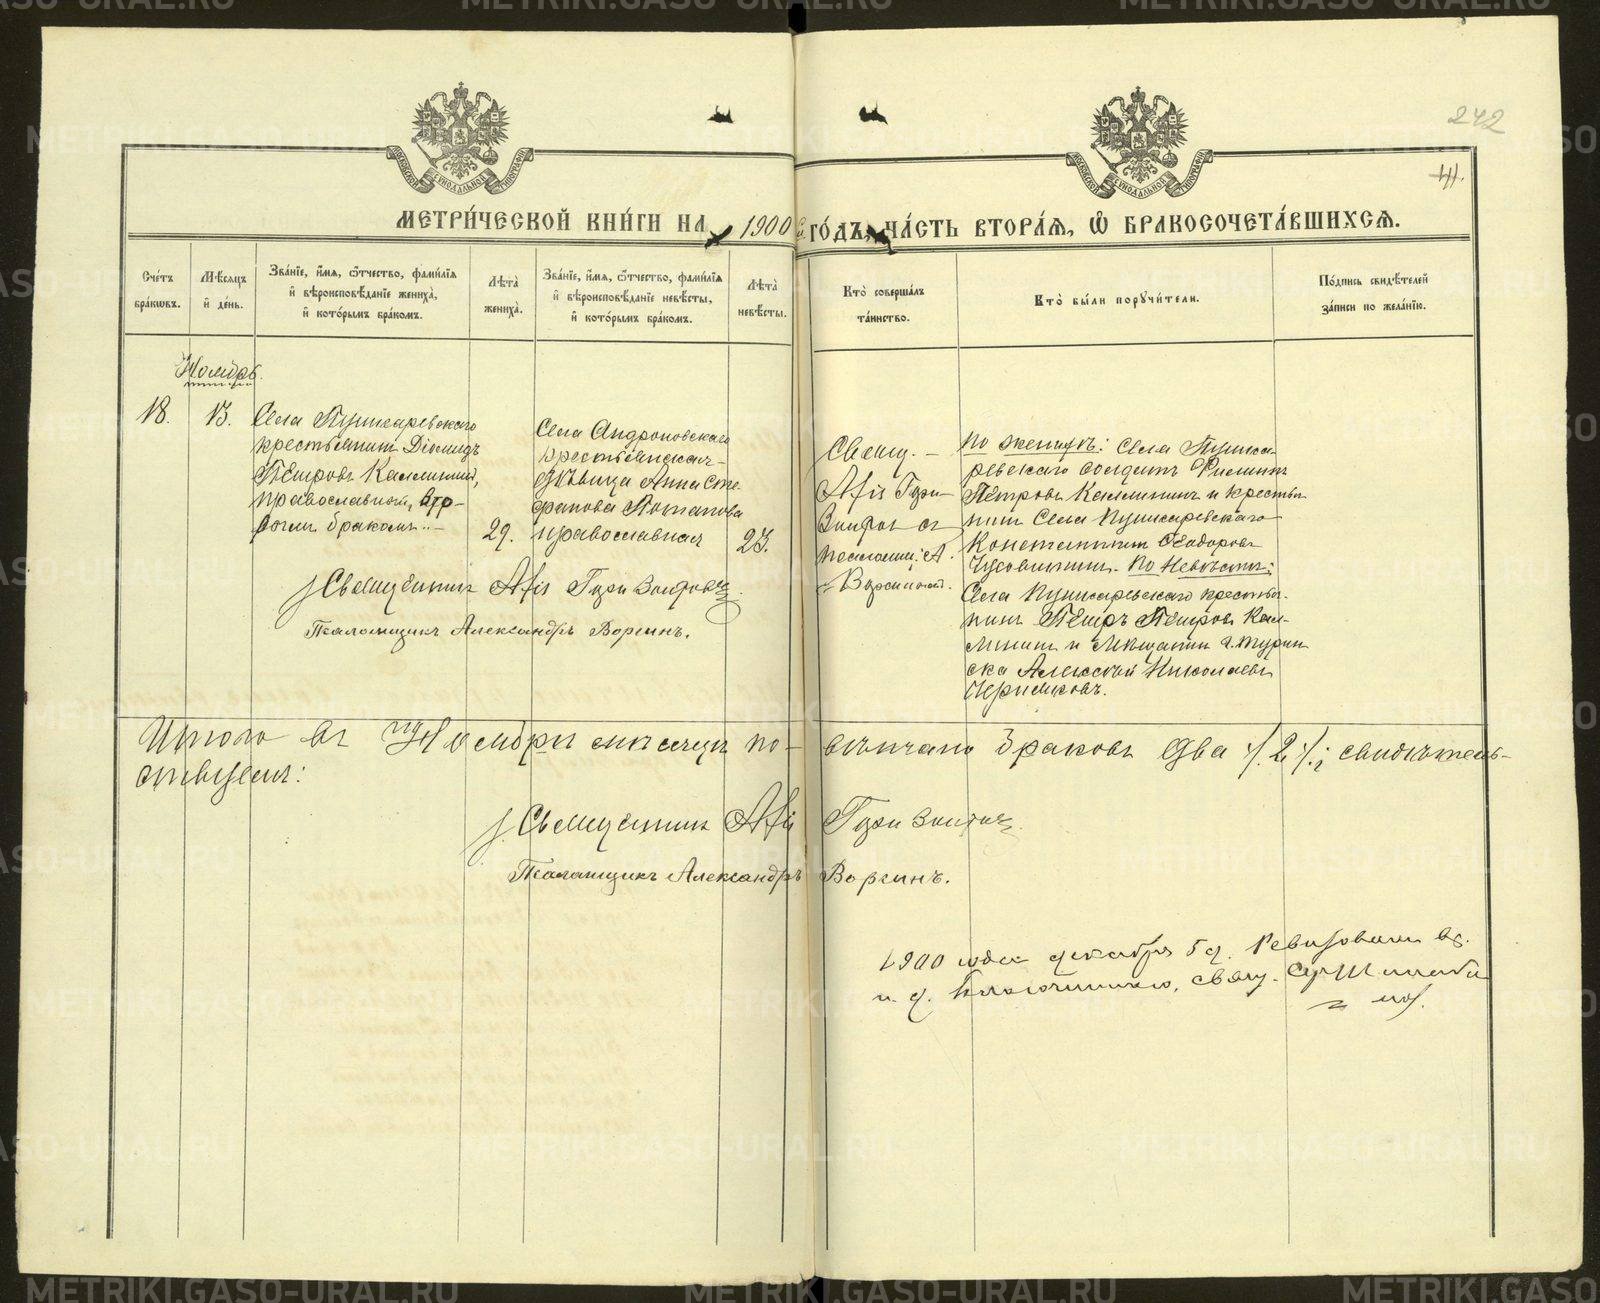 242
41.
МЕТРИ́ЧЕСКОЙ КНИ́ГИ НА 1900 ГО́ДЪ, ЧА́СТЬ ВТОРА́Я, Ѡ БРАКОСОЧЕТА́ВШИХСЯ.
Сче́тъ бра́кѡвъ.
Мѣ́сяцъ и҆ де́нь.
Зва́нїе, и҆́мя, ѻ҆́тчество, фами́лїя и҆ вѣроисповѣ́данїе жениха̀, и҆ кото́рымъ бра́комъ.
Лѣта̀ жениха̀.
Зва́нїе, и҆́мя, ѻ҆́тчество, фами́лїя и҆ вѣроисповѣ́данїе невѣ́сты, и҆ кото́рымъ бра́комъ.
Лѣта̀ невѣ́сты.
Кто̀ соверша́лъ та́инство.
Кто̀ бы́ли порꙋчи́тели.
По́дпись свидѣ́телей за́писи по жела́нїю.
Ноябрь.
18.
13.
Села Пушкаревскаго
крестьянинъ Діомидъ
Петровъ Калининъ,
православный, вто-
рымъ бракомъ.
29.
Села Андроновскаго
крестьянская
дѣвица Анна Сте-
фанова Потапова
православная
23.
Свящ.
съ
псаломщ: А.
Воргинъ.
По женихѣ: Села Пушка-
ревскаго солдатъ Филиппъ
Петровъ Калининъ и крестья-
нинъ Села Пушкаревскаго
Константинъ Ѳеодоровъ
По Невѣстѣ:
Села Пушкаревскаго крестья-
нинъ Петръ Петровъ Кал-
ининъ и мѣщанинъ г. Турин-
ска Алексѣй Николаевъ
Священникъ
Псаломщикъ Александръ Воргинъ.
Итого въ Ноябрѣ мѣсяцѣ по-вѣнчано браковъ два ./.2./.; свидѣтель-
ствуемъ:
Священникъ
Псаломщикъ Александръ Воргинъ.
1900 года декабря 5 д. Ревизовалъ
и. д. благочиннаго, свящ.